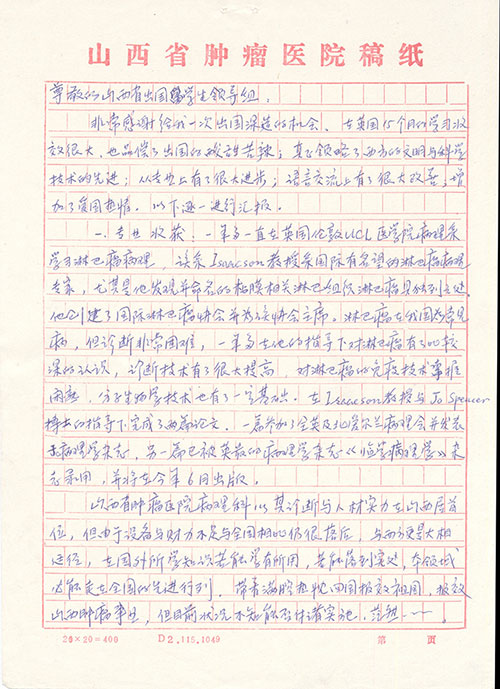 山西省肿瘤医院稿纸
尊敬的山西省出国留学生领导组：
非常感谢给我一次出国深造的机会。在英国15个月的学习收
效很大，也品偿了出国的酸甜苦辣；真正领略了西方的文明与科学
技术的先进；从专业上有了很大进步；语言交流上有了很大改善；增
加了爱国热情。以下逐一进行汇报。
一、专业收获：一年多一直在英国伦敦UCL医学院病理系
学习淋巴瘤病理，该系Isaacson教授系国际有名望的淋巴瘤病理
专家，尤其是他发现并命名的粘膜相关淋巴组织淋巴瘤具
他创建了国际淋巴瘤协会并为该协会主席。淋巴瘤在我国为常见
病，但诊断非常困难，一年多在他的指导下对淋巴瘤有了比较
深的认识，诊断技术有了很大提高，对淋巴瘤的免疫技术掌握
闲熟，分子生物学技术也有了一定基础。在Isaacson教授与Jo Spencer
博士的指导下完成了两篇论文，一篇参加了全英及北爱尔兰病理会并发表
在病理学杂志，另一篇已被英最的病理学杂志《临床病理学》杂
志录用，并将在今年6月出版。
山西省肿瘤医院病理科以其诊断与人材实力在山西居首
位，但由于设备与财力不足与全国相比仍很落后，与西方更是大相
径径，在国外所学知识若能学有所用，若能落到实处，
必能走在全国的先进行列，带着满腔热忱回国报效祖国，报效
山西肿瘤事业，但目前状况不知能否付诸实施，范
20×20=400 D2.115.1049 第 页